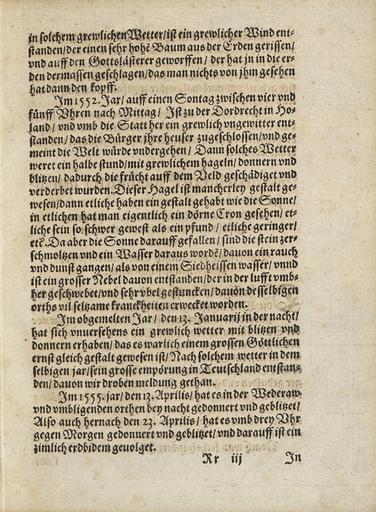 in solchem grewlichen Wetter/ ist ein grewlicher Wind ent-
standen/ der einen sehr hohẽ Baum aus der Erden gerissen/
vnd auff den Gottslästerer geworffen/ der hat jn in die er-
den dermassen geschlagen/ das man nichts von jhm gesehen
hat dann den kopff.
Im 1552. Jar/ auff einen Sontag zwischen vier vnd
fünff Vhren nach Mittag/ Ist zu der Dordrecht in Ho-
land/ vnd vmb die Statt her ein grewlich vngewitter ent-
standen/ das die Bürger jhre heuser zugeschlossen/ vnd ge-
meint die Welt würde vndergehen/ Dann solches Wetter
weret ein halbe stund/ mit grewlichem hageln/ donnern vnd
blitzen/ dadurch die frücht auff dem Veld geschädiget vnd
verderbet wurden. Dieser Hagel ist mancherley gestalt ge-
wesen/ dann etliche haben ein gestalt gehabt wie die Sonne/
in etlichen hat man eigentlich ein dörne Cron gesehen/ et-
liche sein so schwer gewest als ein pfund/ etliche geringer/
etc̃. Da aber die Sonne darauff gefallen/ sind die stein zer-
schmoltzen vnd ein Wasser daraus wordẽ/ dauon ein rauch
vnd dunst gangen/ als von einem Siedheissen wasser/ vnnd
ist ein grosser Nebel dauon entstanden/ der in der lufft vmb-
her geschwebet/ vnd sehr vbel gestuncken/ dauon desselbigen
orths vil seltzame kranckheiten erwecket worden.
Im obgemelten Jar/ den 13. Januarij in der nacht/
hat sich vnuersehens ein grewlich wetter mit blitzen vnd
donnern erhaben/ das es warlich einem grossen Göttlichen
ernst gleich gestalt gewesen ist/ Nach solchem wetter in dem
selbigen jar/ sein grosse empörung in Teutschland entstan-
den/ dauon wir droben meldung gethan.
Im 1555. jar/ den 13. Aprilis/ hat es in der Wederaw
vnd vmbligenden orthen bey nacht gedonnert vnd geblitzet/
Also auch hernach den 23. Aprilis/ hat es vmb drey Vhr
gegen Morgen gedonnert vnd geblitzet/ vnd darauff ist ein
zimlich erdbidem geuolget.
Rr iij In